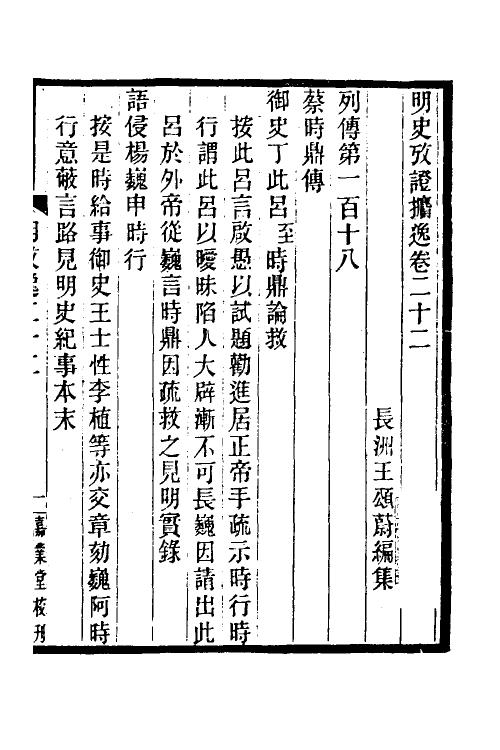 明史攷證攟逸卷二十二
長洲王頌蔚編集
列傳第一百十八
蔡時鼎傳
御史丁此呂至時鼎論救
按此呂言啟愚以試題勸進居正帝手疏示時行時
行謂此呂以曖昧陷人大辟漸不可長巍因請出此
呂於外帝從巍言時鼎因疏救之見明實錄
語侵楊巍申時行
按是時給事御史王士性李植等亦交章劾巍阿時
行意蔽言路見明史紀事本末
一 嘉業堂校刊